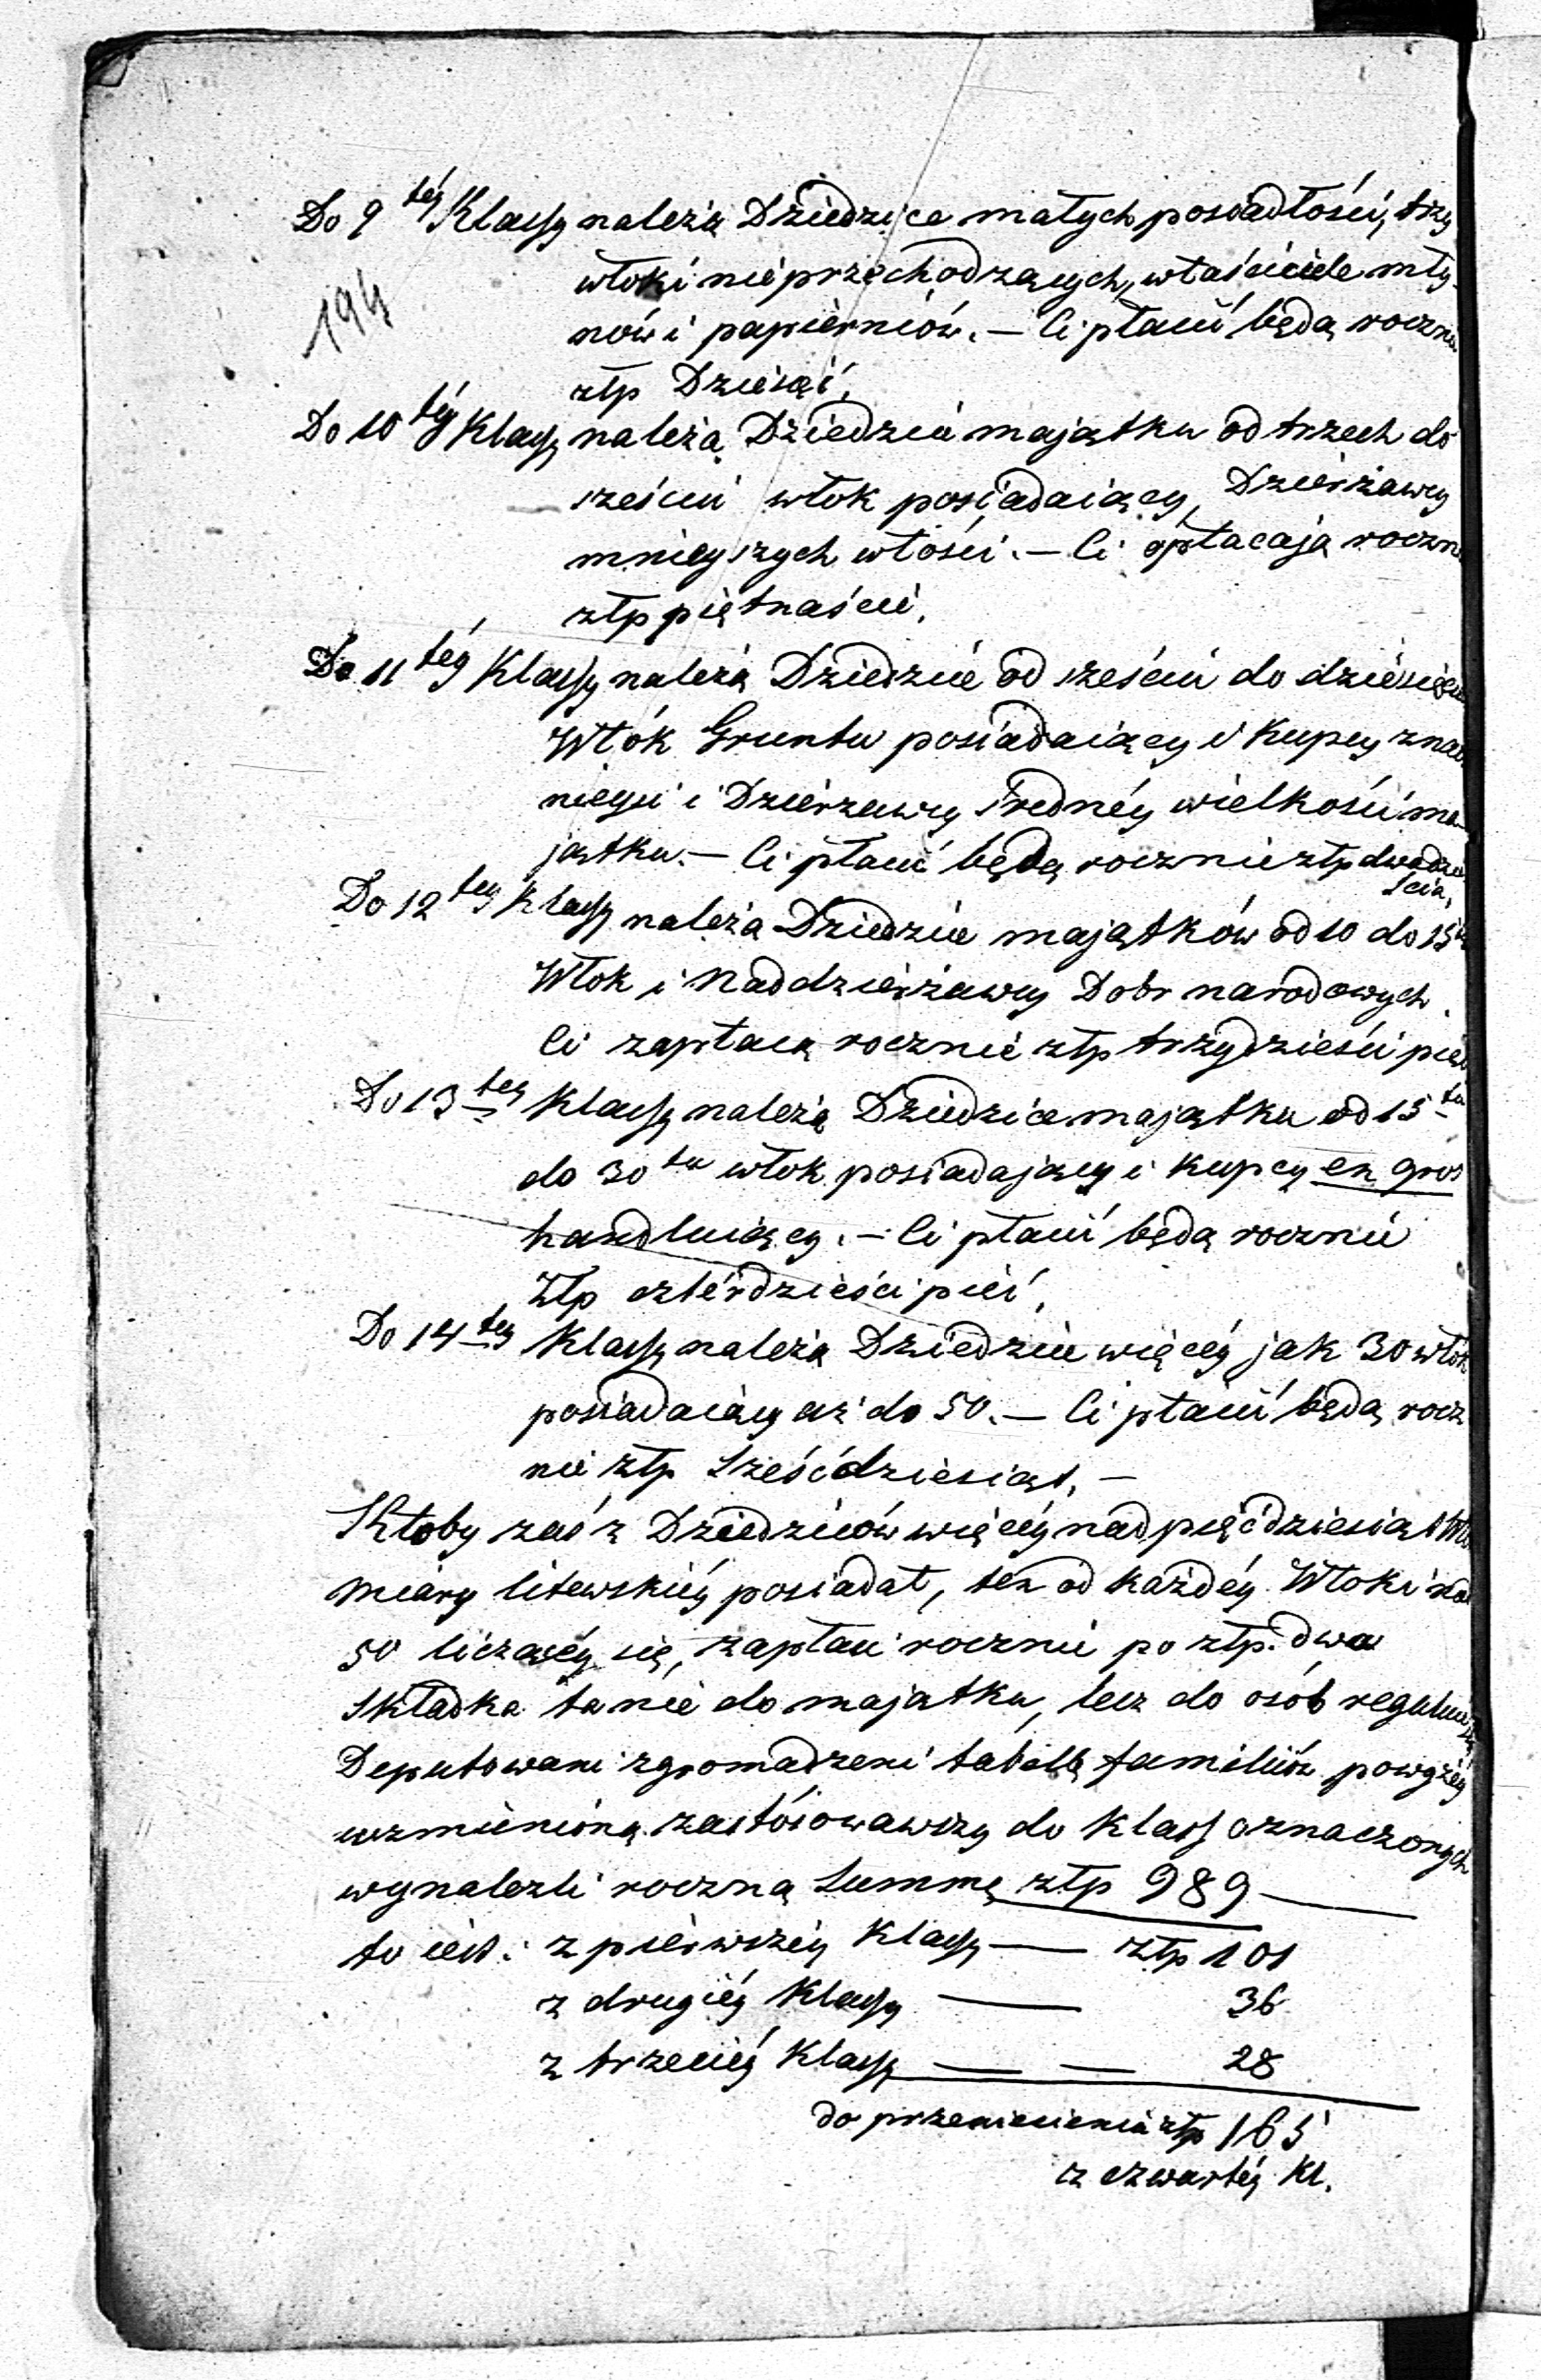 Do 9 téy Klassy należą Dziedzice małych posiadłości, trzy
194
włoki nieprzechodzących, właściciele mły-
nów i papierniów. — Ci płacić będą roczni
złp Dziesięć.
Do 10 téy Klassy należą Dziedzice majątku od trzech do
sześciu włok posiadaiący, Dzierżawcy
mnieyszych włości. — Ci opłacają roczn
złp piętnaście.
Do 11 téy Klassy należą Dziedzice od sześciu do dziesięciu
Włók Gruntu posiadaiący i Kupcy znacz
nieysi i Dzierżawcy średniéy wielkości ma-
jątku. — Ci płacić będą rocznie złp dwadzie
ścia.
Do 12 tey Klassy należą Dziedzice majątków od 10 do 15 tu
Włok i Naddzierżawcy Dobr narodowych.
Ci zapłacą rocznie złp trzydzieści pięć
Do 13 tey Klassy należą Dziedzice majątku od 15 tu
do 30 tu włok posiadający i Kupcy en gros
handluiący. — Ci płacić będą rocznie
Złp czterdzieści pięć.
Do 14 tey Klassy należą Dziedzice więcéy jak 30 włók
posiadaiący aż do 50. — Ci płacić będą rocz
nie złp Sześćdziesiąt. —
Ktoby zaś z Dziedziców więcéy nad pięćdziesiąt Wło
miary litewskiéy posiadał, ten od każdéy Włoki nad
50 liczącéy się, zapłaci rocznie po złp. dwa
Składka ta nie do majątku, lecz do osób reguluie się
Deputowani zgromadzeni tabellę familiów powyżéy
wzmienioną zastósowawszy do Klass oznaczonych
wynalezli roczną Summę złp 989 —
to iest: z pierwszéy Klassy — złp 101
z drugiéy Klassy — 36
z trzeciéy Klassy — — 28
do przeniesienia złp 165
z czwartéy Kl.